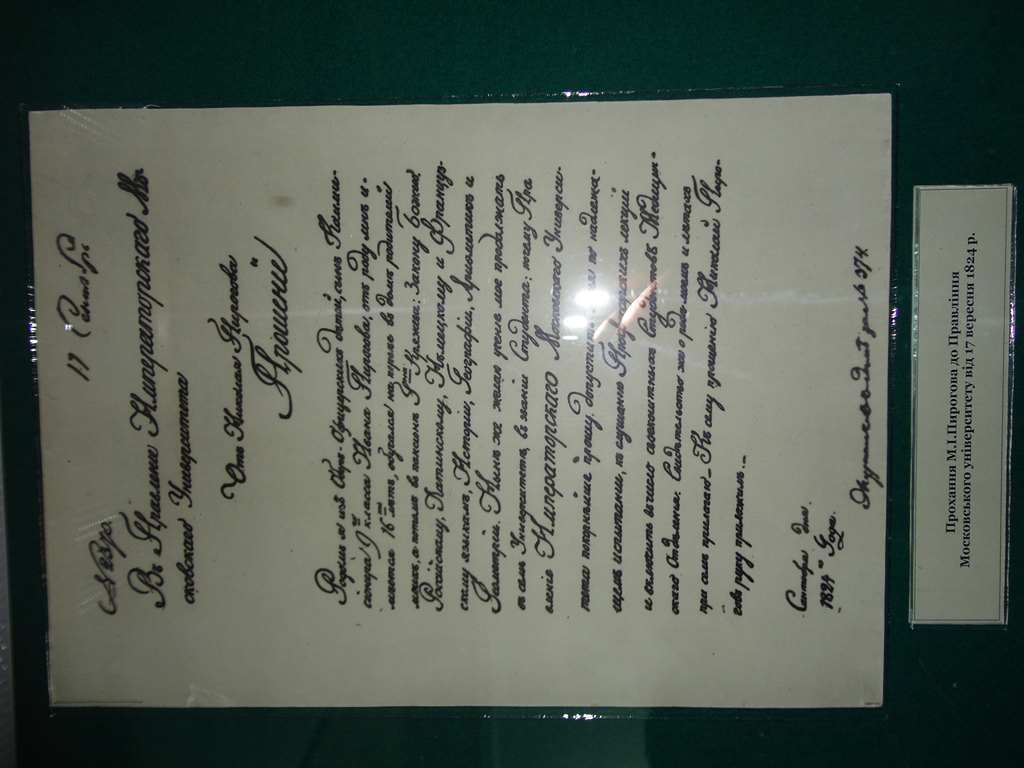 17 Сентбр.
№ 2539.
Въ Правленіе Императорскаго Мо-
сковскаго Университета
Отъ Николая Пирогова
Прошеніе
Родомъ я изъ Оберъ-Офицерскихъ дѣтей, сынъ Комми-
сіонера 9го класса Ивана Пирогова, отъ роду мнѣ и-
мѣется 16ть лѣтъ, обучался на прежь въ домѣ родителей
моихъ, а потомъ въ пансионѣ Гна Кряжева: Закону Божію,
Россійскому, Латинскому, Нѣмецкому и Француз-
скому языкамъ, Исторіи, Географіи, Ариѳметикѣ и
Геометріи. Нынѣ же желаю ученіе мое продолжать
въ семъ Университетѣ, въ званіи Студента: то му Пра
вленіе Императорскаго Московскаго Универси-
тета покорнѣйше прошу, допустить
щемъ испытаніи, къ слушанію Профессорскихъ лекцій
и включить въ число своекоштныхъ Студентовъ Медицин-
скаго Отдѣленія. Свидѣтельство же о родѣ моемъ и лѣтахъ
при семъ прилагаю. – Къ сему прошенію Николай Пиро-
говъ руку приложилъ. –
Сентября дня
1824го Года.
Прохання М.І.Пирогова до Правління
Московського університету від 17 вересня 1824 р.